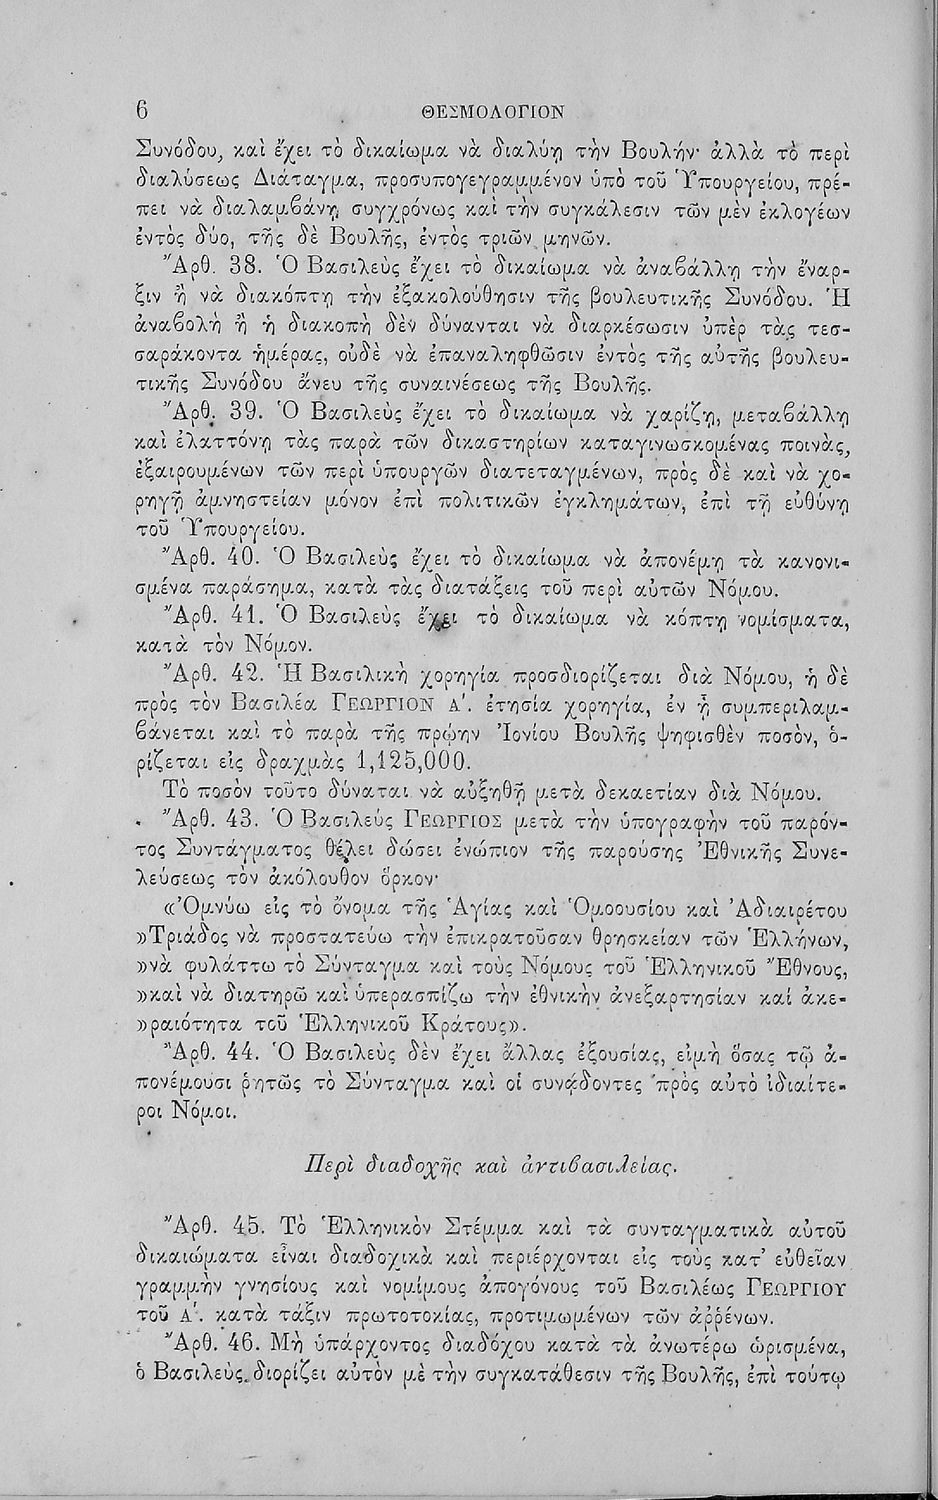 6 ΘΕΣΜΟΛΟΓΙΟΝ
Συνόδου, καὶ ἔχει τὸ δικαίωμα νὰ διαλύῃ τὴν Βουλήν· ἀλλὰ τὸ περὶ
διαλύσεως Διάταγμα, προσυπογεγραμμένον ὑπὸ τοῦ Ὑπουργείου, πρέ-
πει νὰ διαλαμβάνῃ συγχρόνως καὶ τὴν συγκάλεσιν τῶν μὲν ἐκλογέων
ἐντὸς δύο, τῆς δὲ Βουλῆς, ἐντὸς τριῶν μηνῶν.
Ἄρθ. 38. Ὁ Βασιλεὺς ἔχει τὸ δικαίωμα νὰ ἀναβάλλῃ τὴν ἔναρ-
ξιν ἢ νὰ διακόπτῃ τὴν ἐξακολούθησιν τῆς βουλευτικῆς Συνόδου. Ἡ
ἀναβολὴ ἢ ἡ διακοπὴ δὲν δύνανται νὰ διαρκέσωσιν ὑπὲρ τὰς τεσ-
σαράκοντα ἡμέρας, οὐδὲ νὰ ἐπαναληφθῶσιν ἐντὸς τῆς αὐτῆς βουλευ-
τικῆς Συνόδου ἄνευ τῆς συναινέσεως τῆς Βουλῆς.
Ἄρθ. 39. Ὁ Βασιλεὺς ἔχει τὸ δικαίωμα νὰ χαρίζῃ, μεταβάλλῃ
καὶ ἐλαττόνῃ τὰς παρὰ τῶν δικαστηρίων καταγινωσκομένας ποινὰς,
ἐξαιρουμένων τῶν περὶ ὑπουργῶν διατεταγμένων, πρὸς δὲ καὶ νὰ χο-
ρηγῇ ἀμνηστείαν μόνον ἐπὶ πολιτικῶν ἐγκλημάτων, ἐπὶ τῇ εὐθύνῃ
τοῦ Ὑπουργείου.
Ἄρθ. 40. Ὁ Βασιλεὺς ἔχει τὸ δικαίωμα νὰ ἀπονέμῃ τὰ κανονι-
σμένα παράσημα, κατὰ τὰς διατάξεις τοῦ περὶ αὐτῶν Νόμου.
Ἄρθ. 41. Ὁ Βασιλεὺς ἔχει τὸ δικαίωμα νὰ κόπτῃ νομίσματα,
κατὰ τὸν Νόμον.
Ἄρθ. 42. Ἡ Βασιλικὴ χορηγία προσδιορίζεται διὰ Νόμου, ἡ δὲ
πρὸς τὸν Βασιλέα ΓΕΩΡΓΙΟΝ Α΄. ἐτησία χορηγία, ἐν ᾗ συμπεριλαμ-
βάνεται καὶ τὸ παρὰ τῆς πρώην Ἰονίου Βουλῆς ψηφισθὲν ποσὸν, ὁ-
ρίζεται εἰς δραχμὰς 1,125,000.
Τὸ ποσὸν τοῦτο δύναται νὰ αὐξηθῇ μετὰ δεκαετίαν διὰ Νόμου.
Ἄρθ. 43. Ὁ Βασιλεὺς ΓΕΩΡΓΙΟΣ μετὰ τὴν ὑπογραφὴν τοῦ παρόν-
τος Συντάγματος θέλει δώσει ἐνώπιον τῆς παρούσης Ἐθνικῆς Συνε-
λεύσεως τὸν ἀκόλουθον ὅρκον·
«Ὀμνύω εἰς τὸ ὄνομα τῆς Ἁγίας καὶ Ὁμοουσίου καὶ Ἀδιαιρέτου
»Τριάδος νὰ προστατεύω τὴν ἐπικρατοῦσαν θρησκείαν τῶν Ἑλλήνων,
»νὰ φυλάττω τὸ Σύνταγμα καὶ τοὺς Νόμους τοῦ Ἑλληνικοῦ Ἔθνους,
»καὶ νὰ διατηρῶ καὶ ὑπερασπίζω τὴν ἐθνικὴν ἀνεξαρτησίαν καί ἀκε-
»ραιότητα τοῦ Ἑλληνικοῦ Κράτους».
Ἄρθ. 44. Ὁ Βασιλεὺς δὲν ἔχει ἄλλας ἐξουσίας, εἰμὴ ὅσας τῷ ἀ-
πονέμουσι ῥητῶς τὸ Σύνταγμα καὶ οἱ συνᾴδοντες πρὸς αὐτὸ ἰδιαίτε-
ροι Νόμοι.
Περὶ διαδοχῆς καὶ ἀντιβασιλείας.
Ἄρθ. 45. Τὸ Ἑλληνικὸν Στέμμα καὶ τὰ συνταγματικὰ αὐτοῦ
δικαιώματα εἶναι διαδοχικὰ καὶ περιέρχονται εἰς τοὺς κατ' εὐθεῖαν
γραμμὴν γνησίους καὶ νομίμους ἀπογόνους τοῦ Βασιλέως ΓΕΩΡΓΙΟΥ
τοῦ Α΄. κατὰ τάξιν πρωτοτοκίας, προτιμωμένων τῶν ἀῤῥένων.
Ἄρθ. 46. Μὴ ὑπάρχοντος διαδόχου κατὰ τὰ ἀνωτέρω ὡρισμένα,
ὁ Βασιλεὺς διορίζει αὐτὸν μὲ τὴν συγκατάθεσιν τῆς Βουλῆς, ἐπὶ τούτῳ